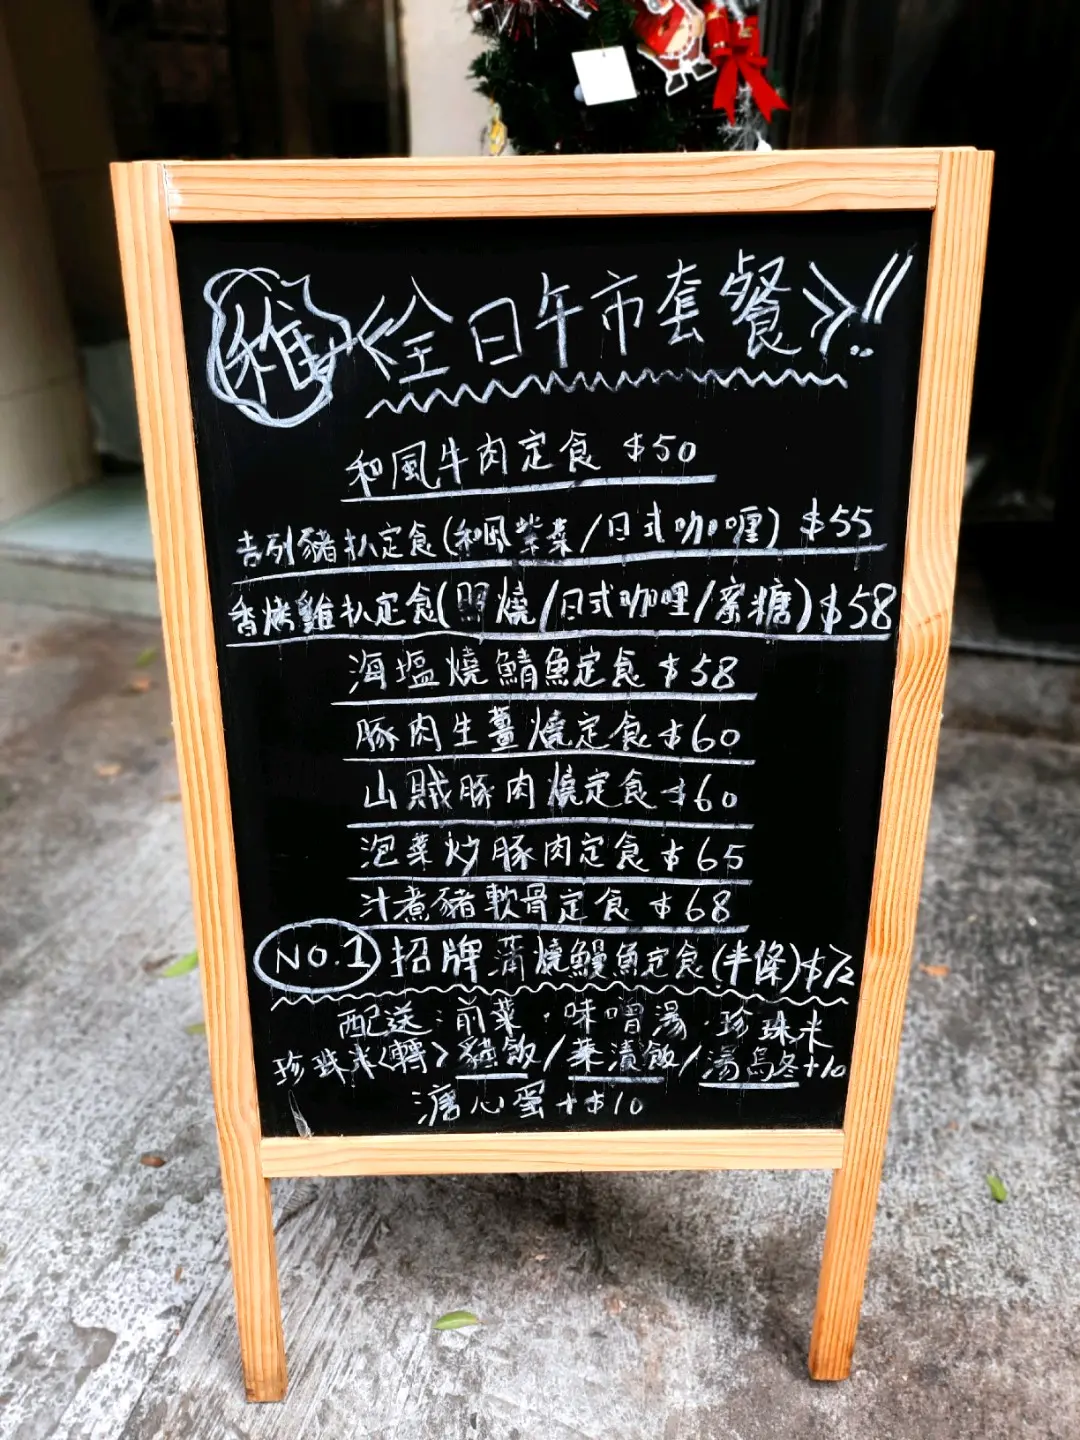 《全日午市套餐》!!
和風牛肉定食 $50
吉列豬扒定食(和風紫菜/日式咖喱)$55
香烤雞扒定食(照燒/日式咖哩/蜜糖)$58
海塩燒鯖魚定食 $58
豚肉生薑燒定食 $60
山賊豚肉燒定食 $60
泡菜炒豚肉定食 $65
汁煮豬軟骨定食 $68
NO.1 招牌蒲燒鰻魚定食(半條)$72
配送:前菜·味噌湯·珍珠米
珍珠米<轉>雞飯/菜漬飯/湯烏冬+10
溏心蛋+$10